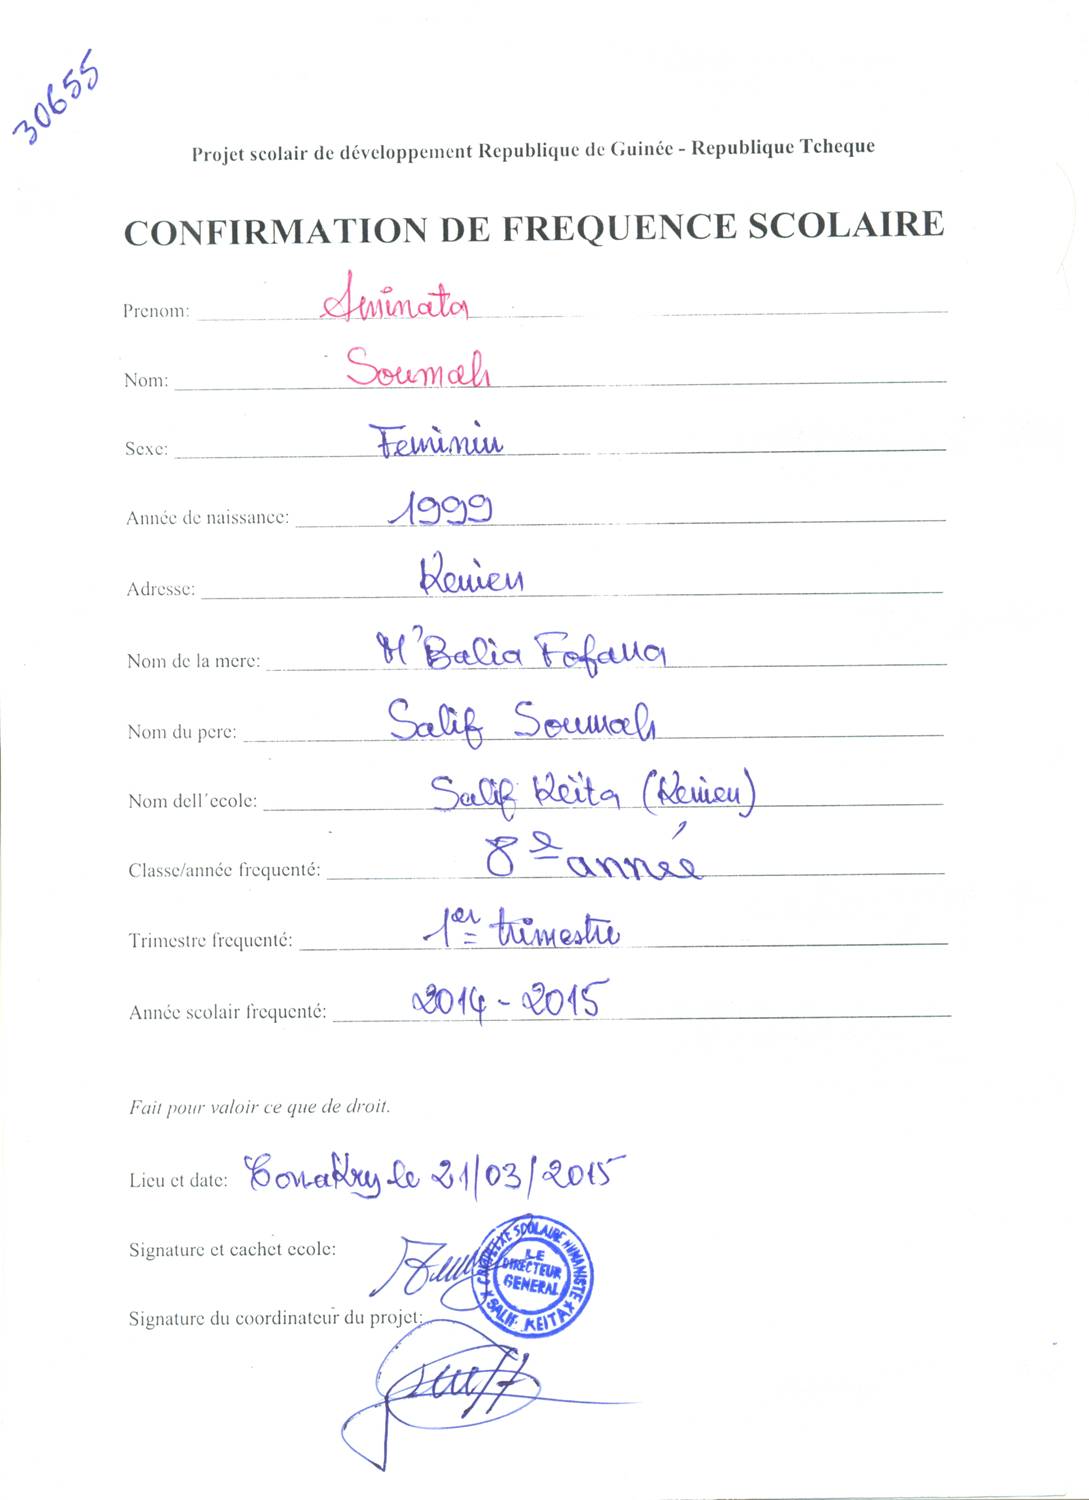 30655
Projet scolair de développement Republique de Guinée - Republique Tcheque
CONFIRMATION DE FREQUENCE SCOLAIRE
Prenom: Aminata
Nom: Soumah
Sexe: Feminin
Année de naissance: 1999
Adresse: Kenien
Nom de la mere: M'Balia Fofana
Nom du pere: Salif Soumah
Nom dell´ecole: Salif Keïta (Kenien)
Classe/année frequenté: 8e année
Trimestre frequenté: 1er trimestre
Année scolair frequenté: 2014 - 2015
Fait pour valoir ce que de droit.
Lieu et date: Conakry le 21/03/2015
Signature et cachet ecole:
COMPLEXE SCOLAIRE HUMANISTE
LE
DIRECTEUR
GENERAL
★ SALIF KEITA ★
Signature du coordinateur du projet: